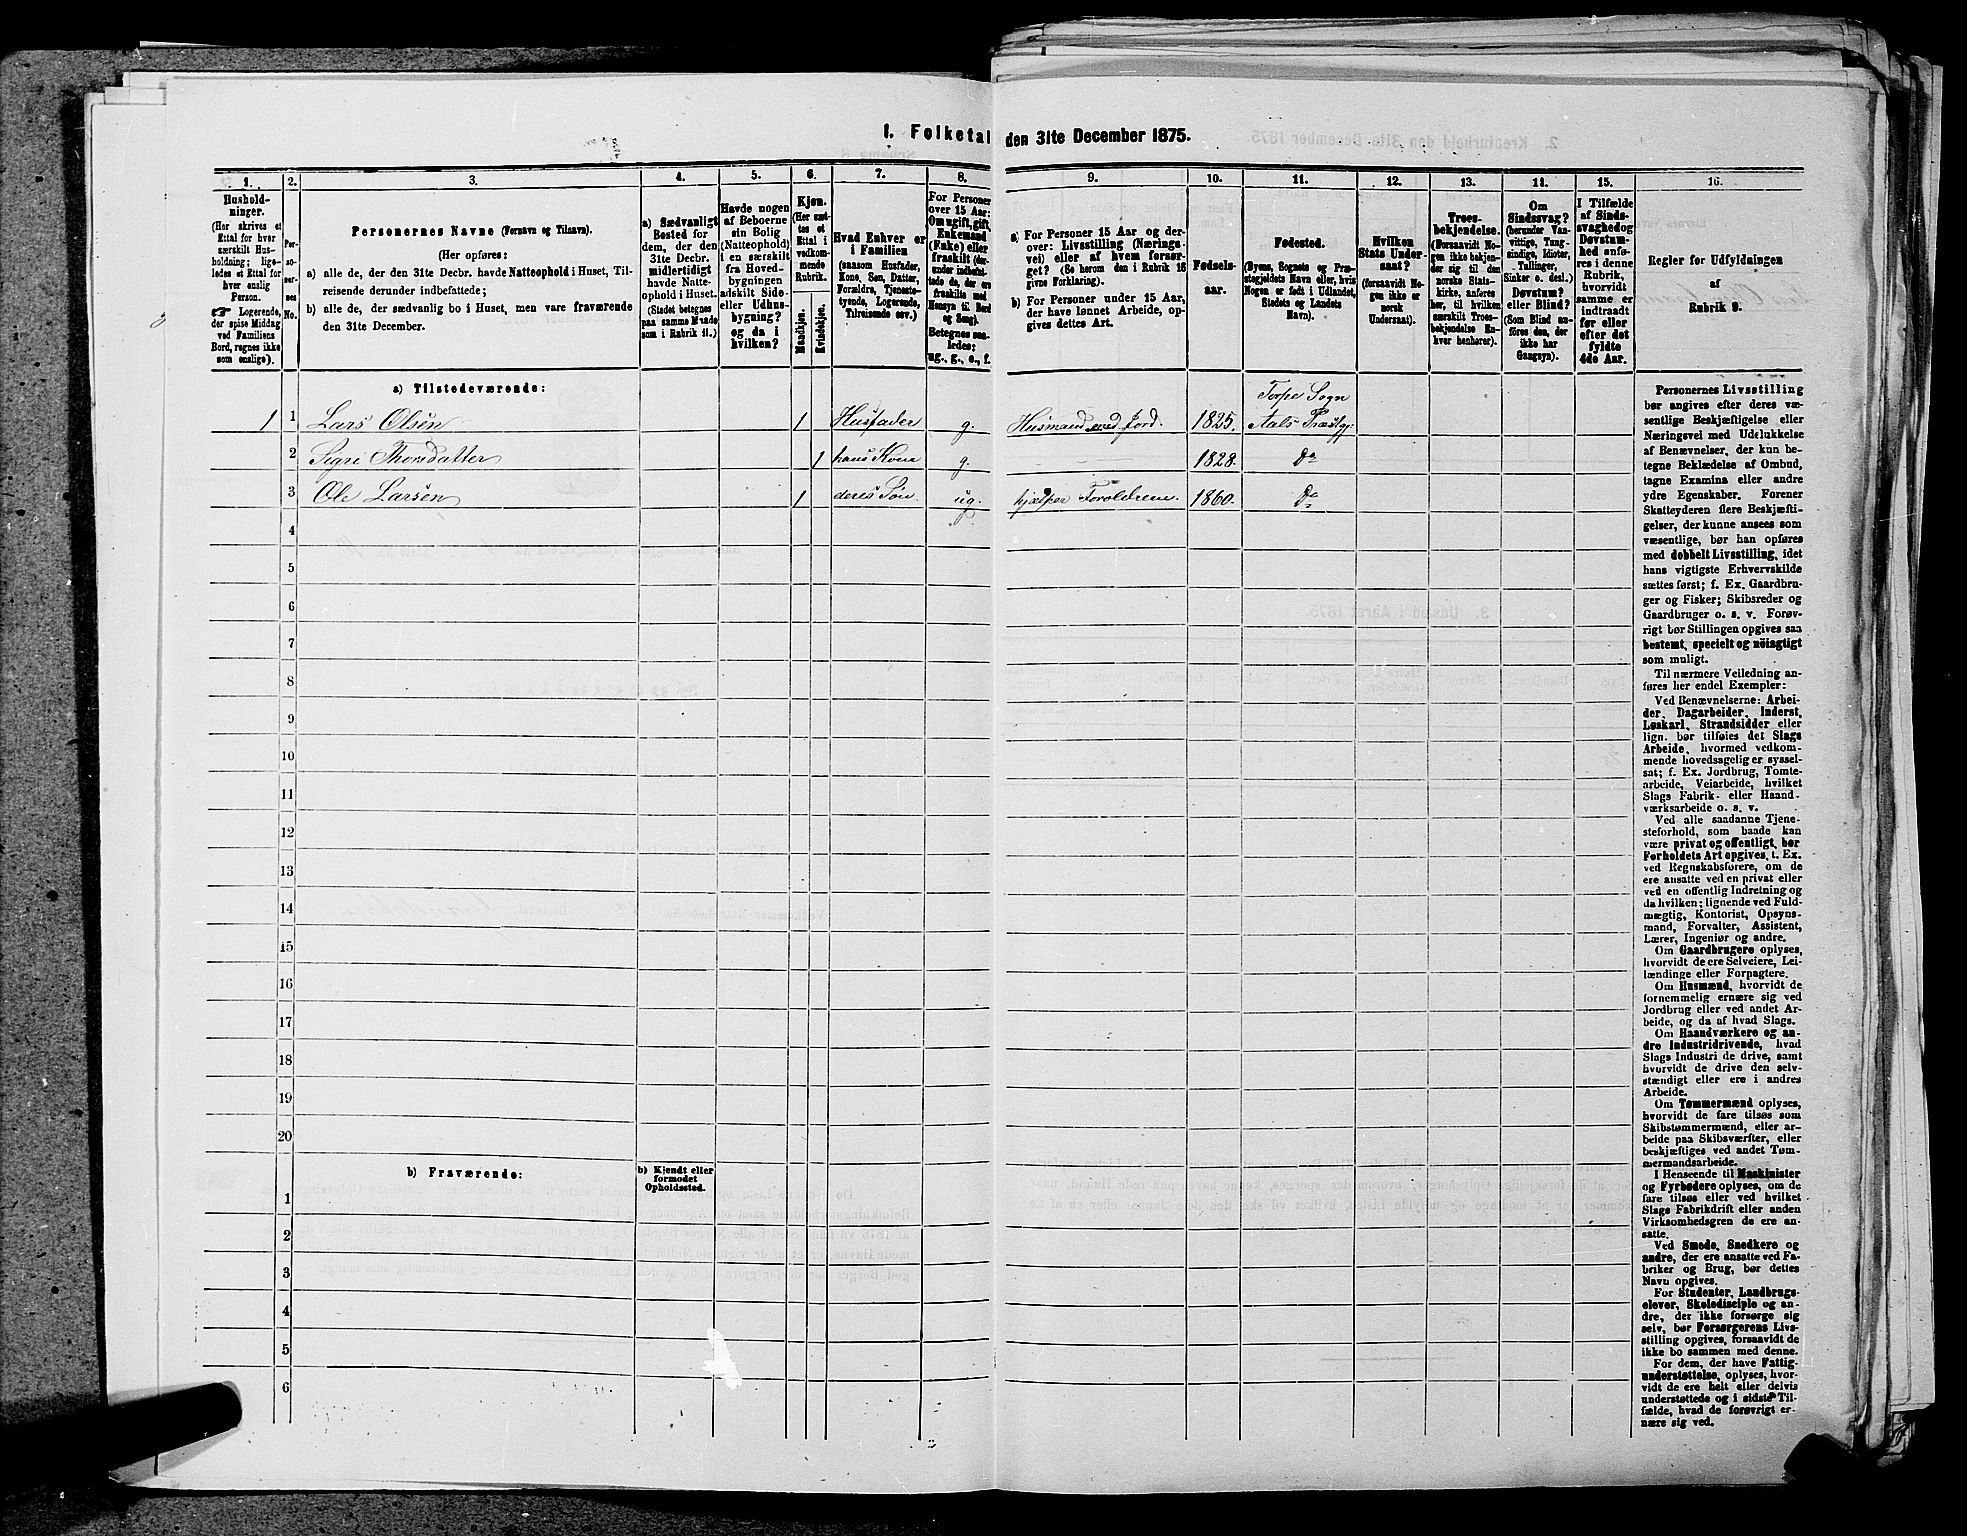 1. Folketal den 31te December 1875.
1. 2. 3. 4. 5. 6. 7. 8. 9. 10. 11. 12. 13. 14. 15. 16.
Husholdninger.
(Her skrives et
Ettal for hver
særskilt Husholdning; ligeledes
et Ettal for
hver enslig
Person.
☞ Logerende,
der spise Middag
ved Familiens
Bord, regnes ikke
som enslige).
Personernes No.
Personernes Navne (Fornavn og Tilnavn).
(Her opføres:
a) alle de, der den 31te Decbr. havde Natteophold i Huset, Tilreisende
derunder indbefattede;
b) alle de, sædvanlig bo i Huset, men vare fraværende
den 31te December.
a) Sædvanligt
Bosted for
dem, der den
31te Decbr.
midlertidigt
havde Natteophold
i Huset.
(Stedet betegnes
paa samme Maade
som i Rubrik 11.)
Havde nogen
af Beboerne
sin Bolig
(Natteophold)
i en særskilt
fra Hovedbygningen
adskilt Side-
eller Udhusbygning?
og da i
hvilken?
Kjøn.
(Her sættes
et
Ettal i
vedkommende
Rubrik.
Mandkjøn.
Kvindekjøn.
Hvad Enhver er
i Familien
(saasom Husfader,
Kone, Søn, Datter,
Forældre, Tjenestetyende,
Logerende,
Tilreisende osv.)
For Personer
over 15 Aar:
Om ugift, gift,
Enkemand
(Enke) eller
fraskilt
Betegnes saaledes:
ug., g., e., f.
a) For Personer 15 Aar og derover:
Livsstilling (Næringsvei)
eller af hvem forsørget?
(Se herom den i Rubrik 16
givne Forklaring).
b) For Personer under 15 Aar,
der have lønnet Arbeide, opgives
dettes Art.
Fødselsaar.
Fødested.
(Byens, Sognets og Præstegjeldets
Navn eller, hvis
Nogen er født i Udlandet,
Stedets og Landets
Navn).
Hvilken
Stats Undersaat?
(forsaavidt Nogen
ikke er
norsk
Undersaat).
Troesbekjendelse.
(Forsaavidt Nogen
ikke bekjender
sig til den
norske Statskirke,
anføres
her, til hvilken
særskilt Troesbekjendelse
Enhver
henhører).
Om
Sindssvag?
(herunder Vanvittige,
Tungsindige,
Idioter,
Tullinger,
Sinker o. desl.)
Døvstum?
eller Blind?
(Som Blind anføres
den, der
ikke har
Gangsyn).
I Tilfælde
af Sindssvaghed
og
Døvstumhed
anføres
i denne
Rubrik,
hvorvidt
samme er
indtraadt
før eller
efter det
fyldte
4de Aar.
Regler for Udfyldningen
af
Rubrik 9.
a) Tilstedeværende:
Torpe Sogn
1 1 Lars Olsen 1 Husfader g. Husmand med Jord. 1825. Aals Præstgj:
2 Sigri Thorsdatter 1 hans Kone g. 1828. Do
3 Ole Larsen 1 deres Søn. ug. hjælper Forældrene. 1860. Do
4
5
6
7
8
9
10
11
12
13
14
15
16
17
18
19
20
b) Fraværende:
b) Kjendt eller
formodet
Opholdssted.
1
2
3
4
5
6
Personernes Livsstilling
bør angives efter deres væsentlige
Beskjæftigelse eller
Næringsvei med Udelukkelse
af Benævnelser, der kun betegne
Beklædelse af Ombud,
tagne Examina eller andre
ydre Egenskaber. Forener
Skatteyderen flere Beskjæftigelser,
der kunne ansees som
væsentlige, bør han opføres
med dobbelt Livsstilling, idet
hans vigtigste Erhvervskilde
sættes først; f. Ex. Gaardbruger
og Fisker; Skibsreder og
Gaardbruger o. s. v. Forøvrigt
bør Stillingen opgives saa
bestemt, specielt og nøiagtigt
som muligt.
Til nærmere Veiledning anføres
her endel Exempler:
Ved Benævnelserne: Arbeider,
Dagarbeider, Inderst,
Løskarl, Strandsidder eller
lign. bør tilføies det Slags
Arbeide, hvormed vedkommende
hovedsagelig er sysselsat;
f. Ex. Jordbrug, Tomtearbeide,
Veiarbeide, hvilket
Slags Fabrik- eller Haandværksarbeide
o. s. v.
Ved alle saadanne Tjenesteforhold,
som baade kan
være privat og offentligt, bør
Forholdets Art opgives, t. Ex.
ved Regnskabsførere, om de
ere ansatte ved en privat eller
ved en offentlig Indretning og
da hvilken; lignende ved Fuldmægtig,
Kontorist, Opsynsmand,
Forvalter, Assistent,
Lærer, Ingeniør og andre.
Om Gaardbrugere oplyses,
hvorvidt de ere Selveiere, Leilændinge
eller Forpagtere.
Om Husmænd, hvorvidt de
fornemmelig ernære sig ved
Jordbrug eller ved andet Arbeide,
og da af hvad Slags.
Om Haandværkere og andre
Industridrivende, hvad
Slags Industri de drive, samt
hvorvidt de drive den selvstændigt
eller ere i andres
Arbeide.
Om Tømmermænd oplyses,
hvorvidt de fare tilsøs som
Skibstømmermænd, eller arbeide
paa Skibsværfter, eller
beskjæftiges ved andet Tømmermandsarbeide.
I Henseende til Maskinister
og Fyrbødere oplyses, om de
fare tilsøs eller ved hvilket
Slags Fabrikdrift eller anden
Virksomhedsgren de ere ansatte.
Ved Smede, Snedkere og
andre, der ere ansatte ved Fabriker
og Brug, bør dettes
Navn opgives.
For Studenter, Landbrugselever,
Skoledisciple og andre,
der ikke forsørge sig
selv, bør Forsørgerens Livsstilling
opgives, forsaavidt de
ikke bo sammen med denne.
For dem, der have Fattigunderstøttelse,
oplyses, hvorvidt
de ere helt eller delvis
understøttede og i sidste Tilfælde,
hvad de forøvrigt ernære
sig ved.